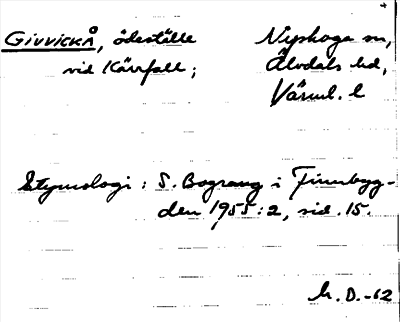 GIVVICKÅ, ödeställe
vid Kärrfall;
Nyskoga sn,
Älvdals hd,
Värml. l
Etymologi: S. Bograng i Finnbyg-
den 1955:2, sid. 15.
M.D.-62